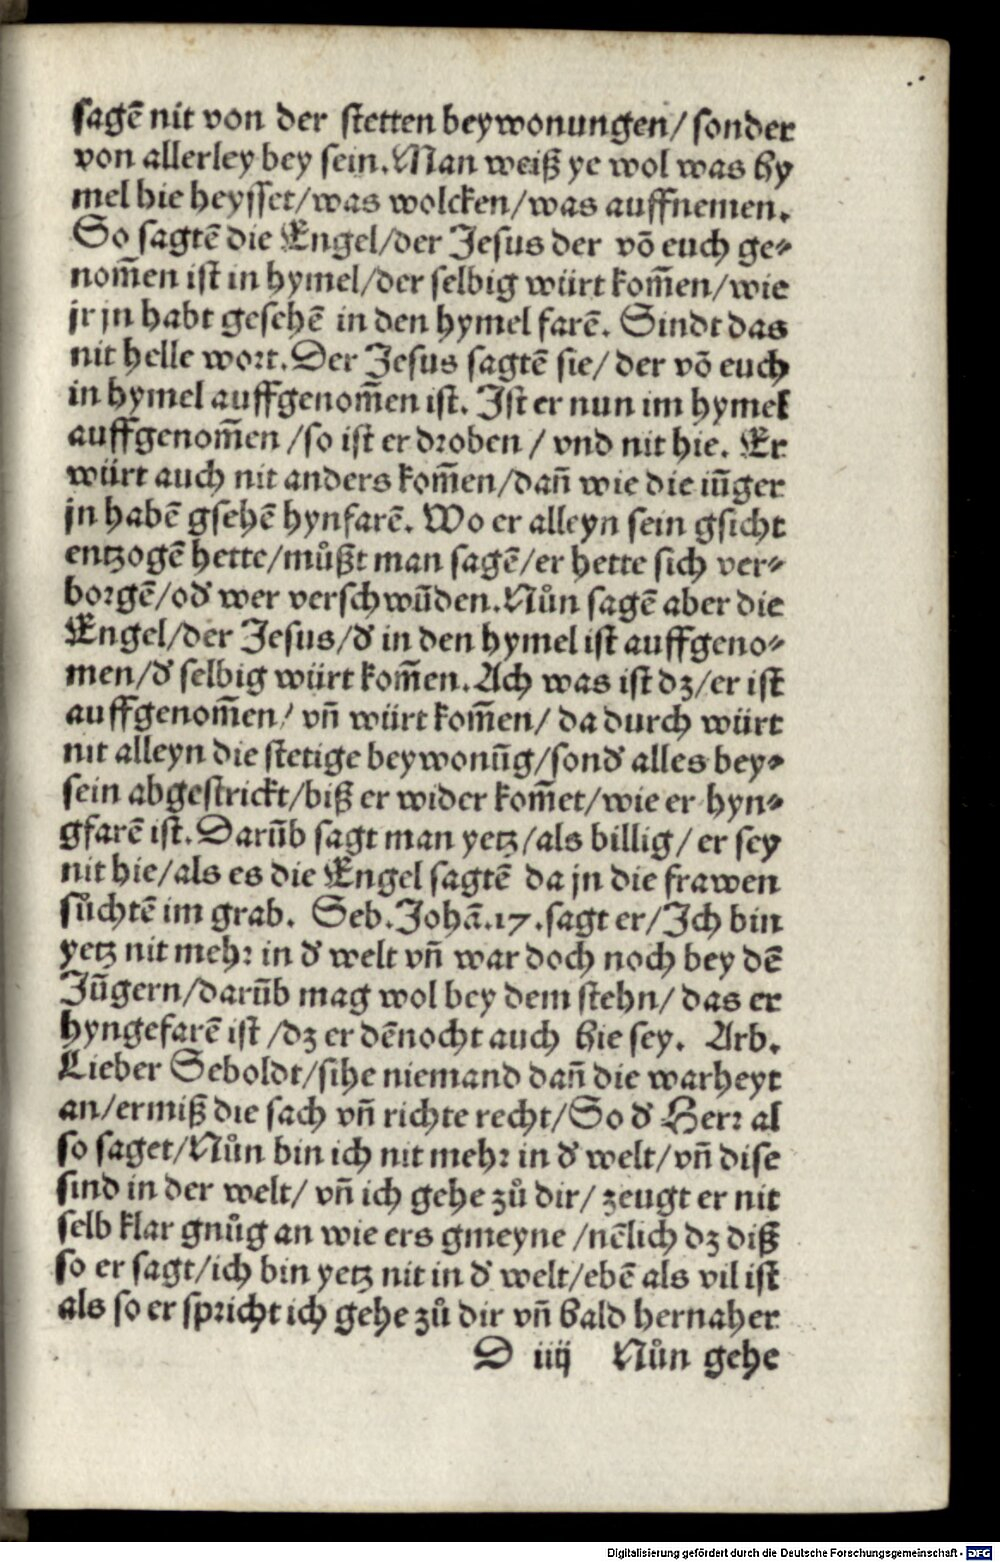 sagē nit von der stetten beywonungen/ sonder
von allerley bey sein. Man weiß ye wol was hy
mel hie heysset/was wolcken/was auffnemen.
So sagtē die Engel/der Jesus der vō euch ge⸗
nom̄en ist in hymel/der selbig würt kom̄en/wie
jr jn habt gesehē in den hymel farē. Sindt das
nit helle wort. Der Jesus sagtē sie/ der vō euch
in hymel auffgenom̄en ist. Ist er nun im hymel
auffgenom̄en /so ist er droben / vnd nit hie. Er
würt auch nit anders kom̄en/dañ wie die iūger
jn habē gsehē hynfarē. Wo er alleyn sein gsicht
entzogē hette/můßt man sagē/er hette sich ver⸗
borgē/od' wer verschwūden. Nůn sagē aber die
Engel/der Jesus/d' in den hymel ist auffgeno⸗
men/d' selbig würt kom̄en. Ach was ist dz/er ist
auffgenom̄en/ vñ würt kom̄en/ da durch würt
nit alleyn die stetige beywonūg/sond' alles bey⸗
sein abgestrickt/biß er wider kom̄et/wie er hyn⸗
gfarē ist. Darūb sagt man yetz/als billig/ er sey
nit hie/als es die Engel sagtē da jn die frawen
sůchtē im grab. Seb. Johā. 17. sagt er/Ich bin
yetz nit mehr in d' welt vñ war doch noch bey dē
Jūgern/darūb mag wol bey dem stehn/ das er
hyngefarē ist /dz er dēnocht auch hie sey. Arb.
Lieber Seboldt/sihe niemand dañ die warheyt
an/ermiß die sach vñ richte recht/So d' Herr al
so saget/Nůn bin ich nit mehr in d' welt/vñ dise
sind in der welt/ vñ ich gehe zů dir/ zeugt er nit
selb klar gnůg an wie ers gmeyne /nēlich dz diß
so er sagt/ich bin yetz nit in d' welt/ebē als vil ist
als so er spricht ich gehe zů dir vñ bald hernaher
D iiij Nůn gehe
Digitalisierung gefördert durch die Deutsche Forschungsgemeinschaft - DFG